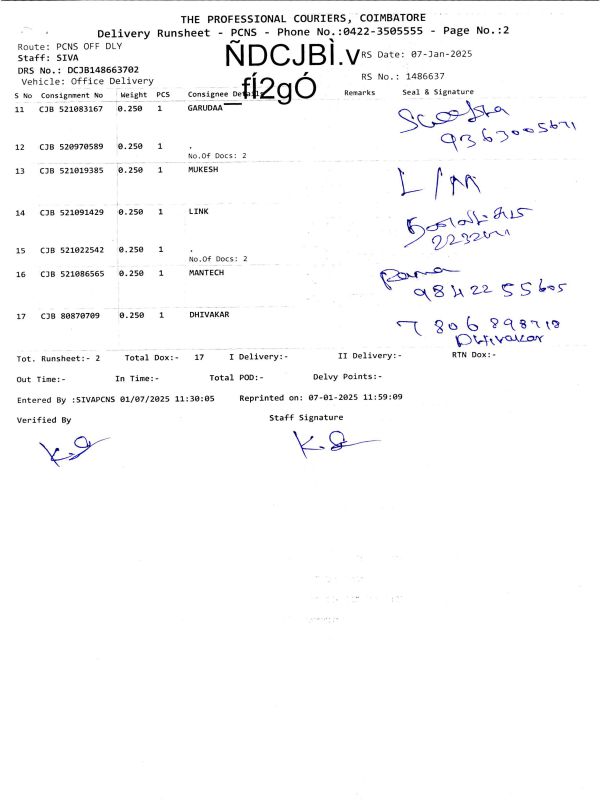 THE PROFESSIONAL COURIERS, COIMBATORE
Delivery Runsheet - PCNS - Phone No.:0422-3505555 - Page No.:2
Route: PCNS OFF DLY
ÑDCJBÌ.v
RS Date: 07-Jan-2025
Staff: SIVA
DRS No.: DCJB148663702
_fÍ2gÓ
RS No.: 1486637
Vehicle: Office Delivery
S No Consignment No Weight PCS Consignee Details Remarks Seal & Signature
11 CJB 521083167 0.250 1 GARUDAA
9363005671
12 CJB 520970589 0.250 1 .
No.Of Docs: 2
13 CJB 521019385 0.250 1 MUKESH
14 CJB 521091429 0.250 1 LINK
15 CJB 521022542 0.250 1 .
No.Of Docs: 2
16 CJB 521086565 0.250 1 MANTECH
Rama
98422 55605
17 CJB 80870709 0.250 1 DHIVAKAR
7806898718
Dhivakar
Tot. Runsheet:- 2 Total Dox:- 17 I Delivery:- II Delivery:- RTN Dox:-
Out Time:- In Time:- Total POD:- Delvy Points:-
Entered By :SIVAPCNS 01/07/2025 11:30:05 Reprinted on: 07-01-2025 11:59:09
Verified By Staff Signature